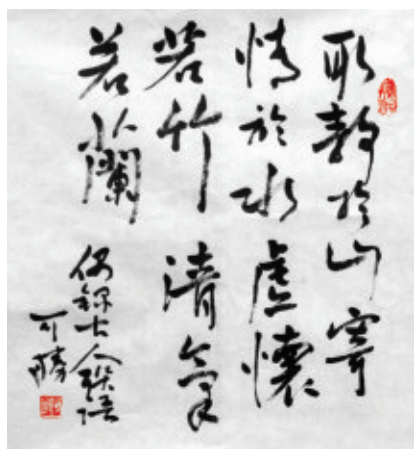 取静於山寄
情於水虛懷
若竹清氣
若蘭
偶錄古人聯語
可勝